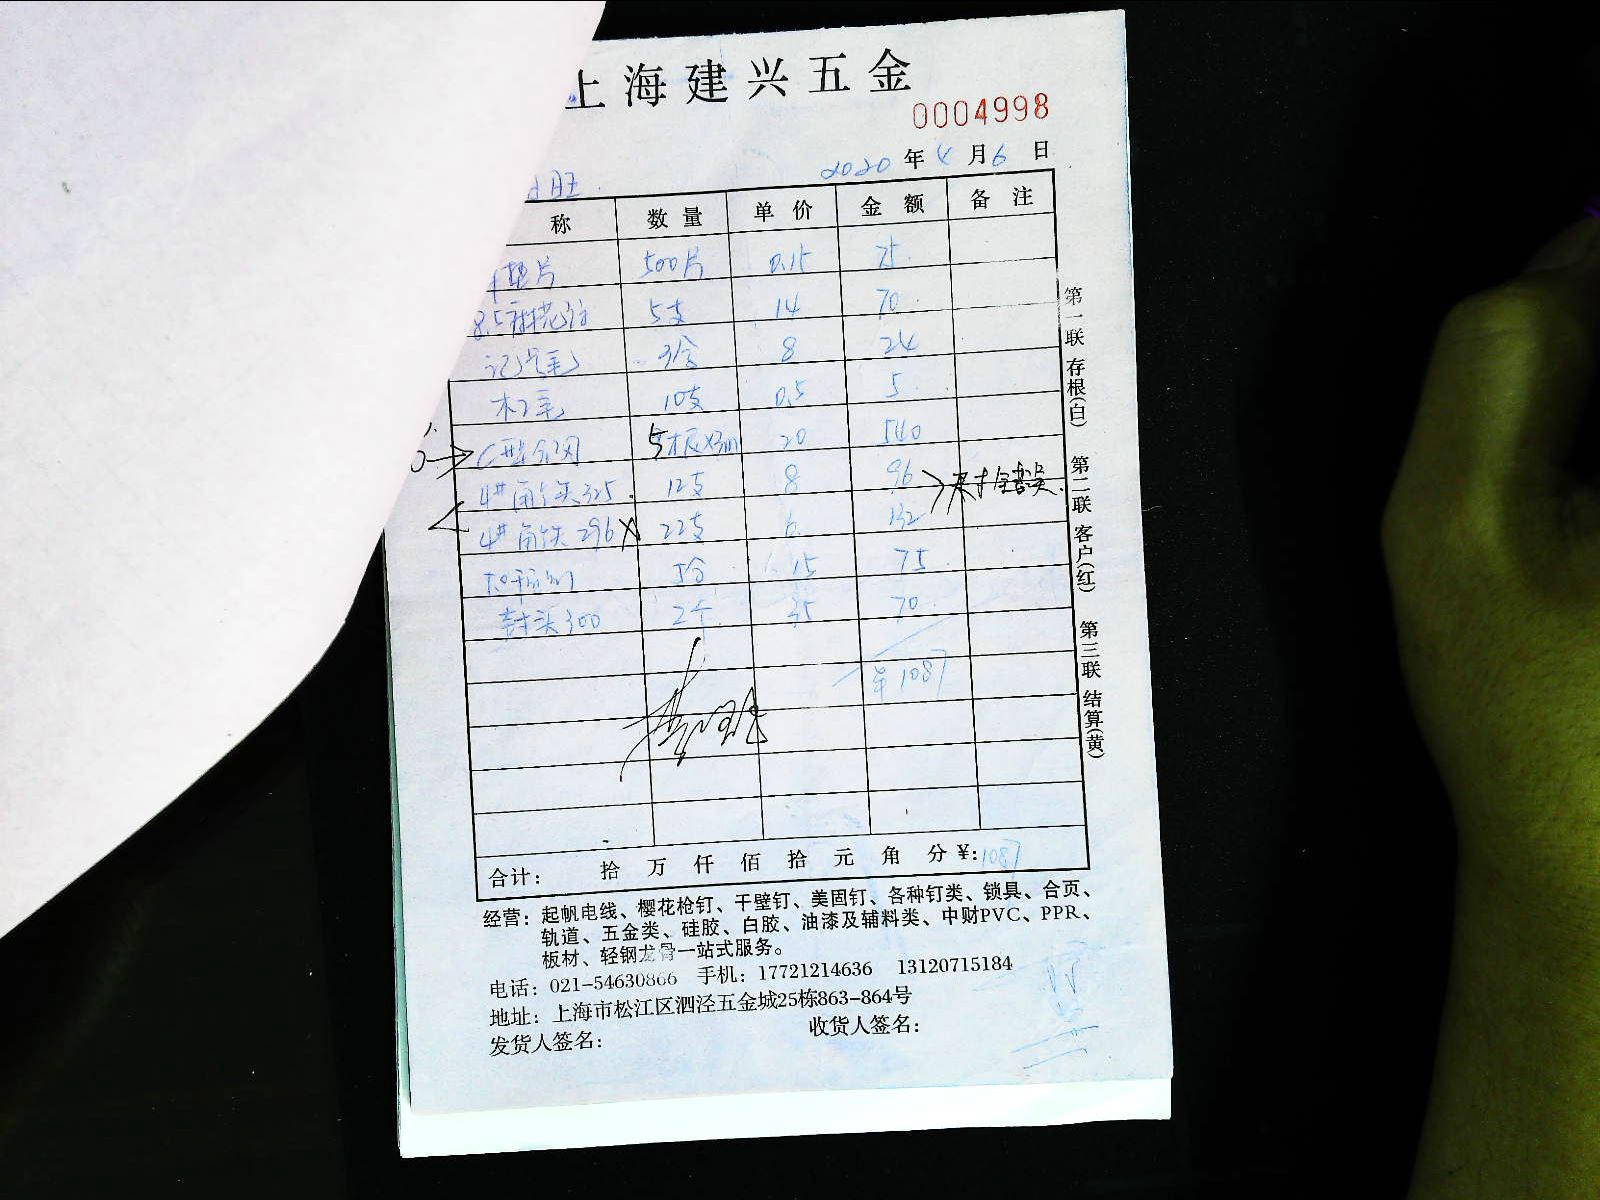 上海建兴五金
0004998
2020年4月6日
旺.
称 数量 单价 金额 备注
垫片 500片 0.15 75.
8.5麻花 5支 14 70.
记号笔 3盒 8 24
木工笔 10支 0.5 5.
C型 5根 20 540
4#角铁325. 12支 8 96
4#角铁296 22支 6. 132
5盒 15 75.
封头300 2个 35 70.
1087
合计: 拾 万 仟 佰 拾 元 角 分 ¥:1087
第一联 存根(白) 第二联 客户(红) 第三联 结算(黄)
经营: 起帆电线、樱花枪钉、干壁钉、美固钉、各种钉类、锁具、合页、
轨道、五金类、硅胶、白胶、油漆及辅料类、中财PVC、PPR、
板材、轻钢龙骨一站式服务。
电话: 021-54630866 手机: 17721214636 13120715184
地址: 上海市松江区泗泾五金城25栋863-864号
发货人签名: 收货人签名: